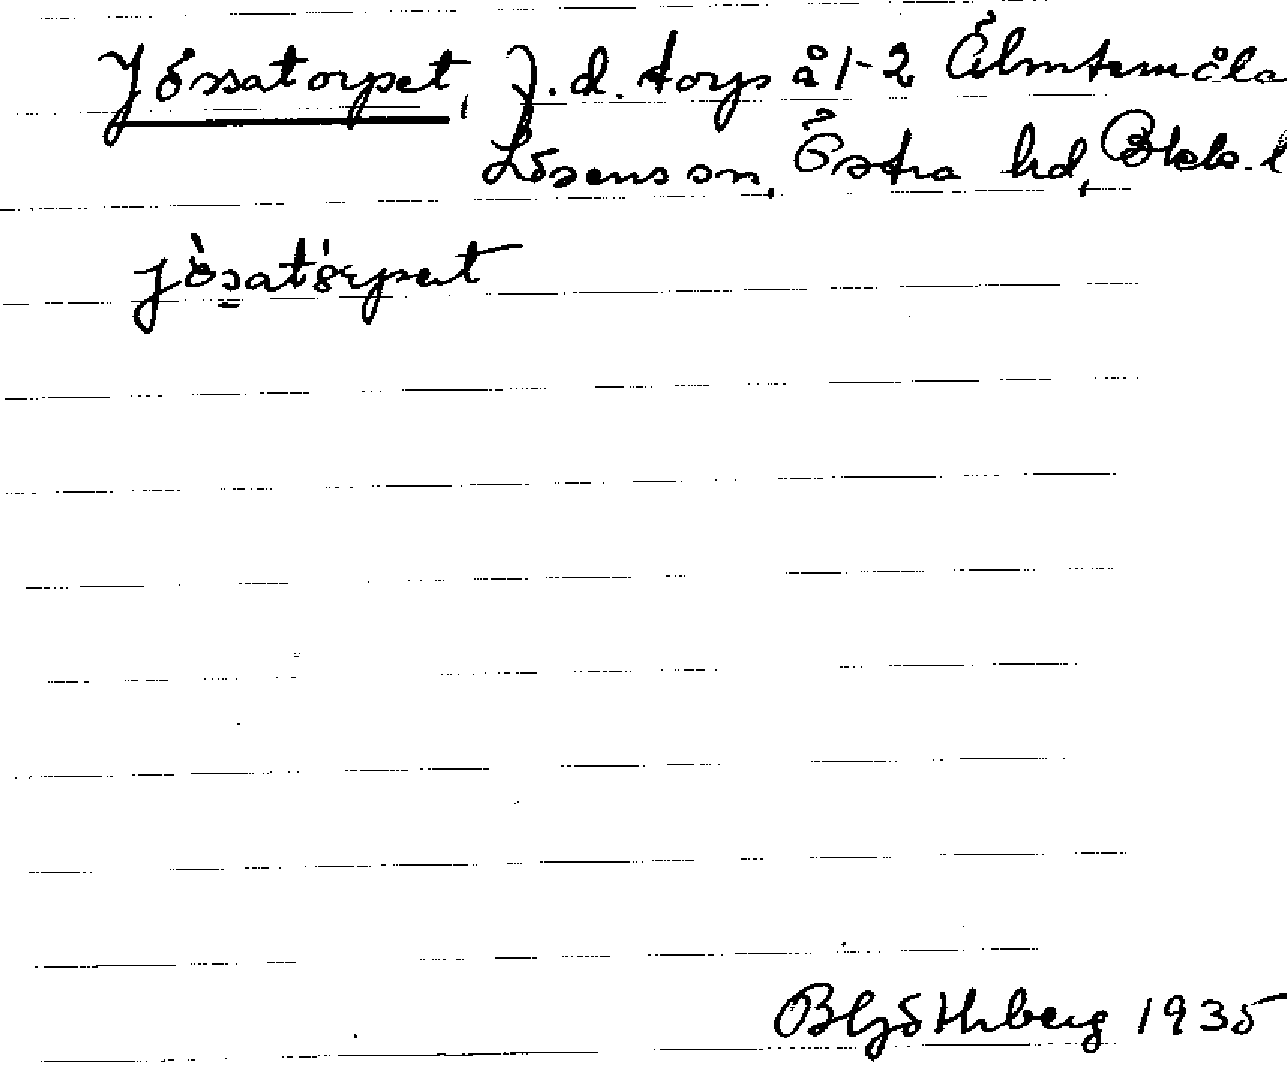 Jössatorpet, f.d. torp å 1-2 Älmtamåla
Lösens sn, Östra hd, Blek. l
jösatörpet
B Göthberg 1935